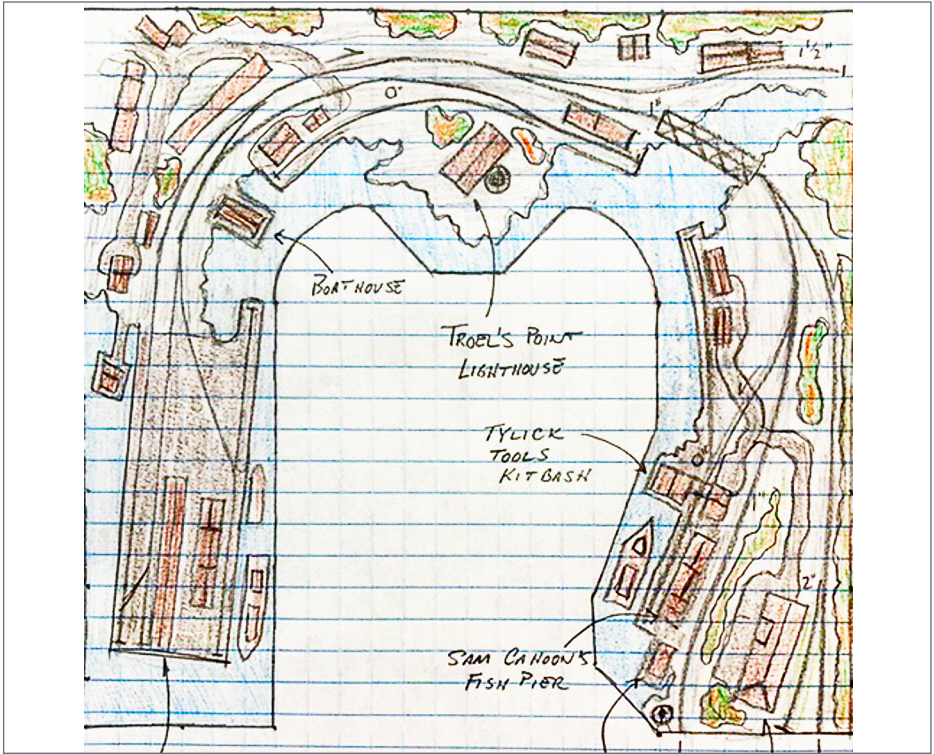 1½"
0"
1"
BOATHOUSE
TROEL'S POINT
LIGHTHOUSE
TYLICK
TOOLS
KITBASH
0"
1"
2"
SAM CAHOON'S
FISH PIER